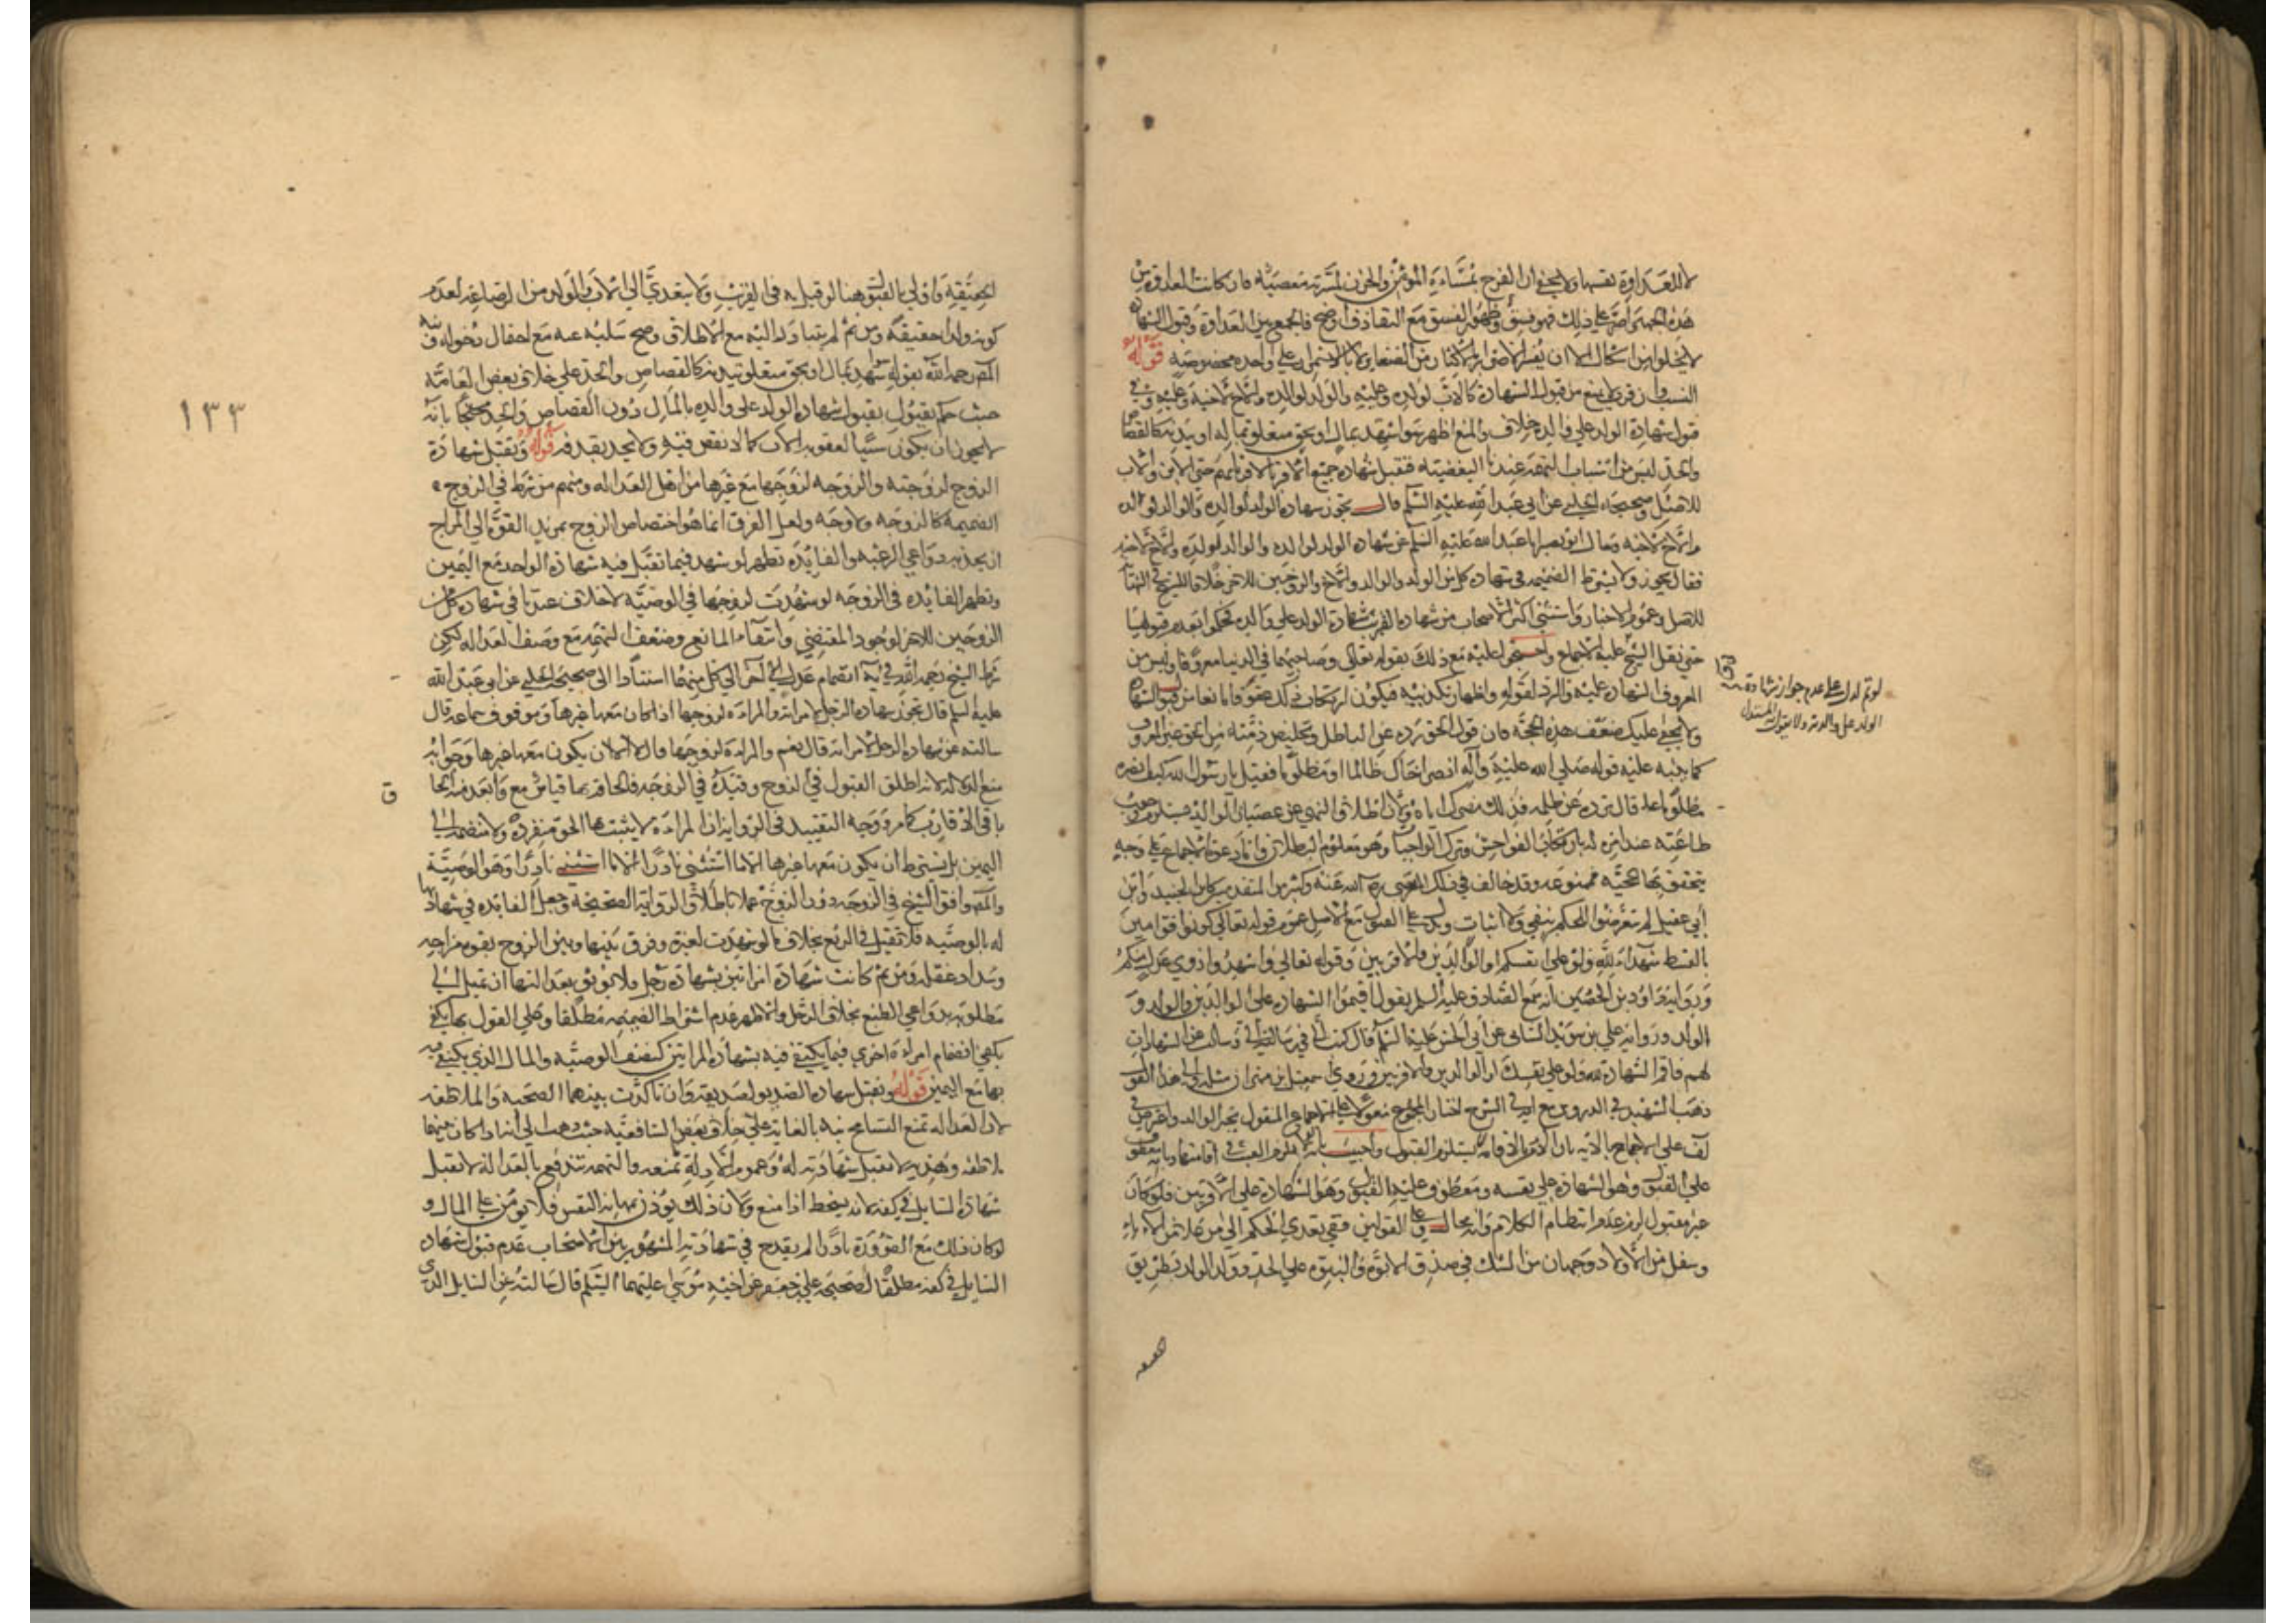 لا للعداوة نفسها ولا يخفى ان الفرح بمساءة المؤمن والحزن لمسرته معصية فان كانت العداوة من
هذه الجهة واصر على ذلك فهو فسق وظهور الفسق مع التقاذف اوضح فالجمع بين العداوة وقبول الشهادة
لا يخلو من اشكال الا ان يفسر الاصرار بالاكثار من الصغاير لا بالاستمرار على واحدة مخصوصة قوله
النسب وان قرب لا يمنع من قبول الشهادة كالاب لولده وعليه والولد لوالده والاخ لاخيه وعليه وفي
قبول شهادة الولد على والده خلاف والمنع اظهر سوا شهد بمال او بحق متعلق بماله او بدنه كالقصاص
والحد ليس من اسباب التهمة عندنا البعضية فتقبل شهادة جميع الاقربا لاقربائهم حتى الابن والاب
للاصل وصحيحة الحلبي عن ابي عبد الله عليه السلم قال تجوز شهادة الولد لوالده والوالد لولده
والاخ لاخيه وسال ابو بصير ابا عبد الله عليه السلم عن شهادة الولد لوالده والوالد لولده والاخ لاخيه
فقال يجوز ولا يشترط الضميمة في شهادة كل من الولد والوالد والاخ والزوجين للاخر خلافا للشيخ في النهاية
للاصل وعموم الاخبار واستثنى اكثر الاصحاب من شهادة القريب شهادة الولد على والده فحكموا بعدم قبولها
حتى نقل الشيخ عليه الاجماع واحتجوا عليه مع ذلك بقوله تعالى وصاحبهما في الدنيا معروفا وليس من
المعروف الشهادة عليه والرد لقوله واظهار تكذيبه فيكون ارتكاب ذلك عقوقا مانعا من قبول الشهادة
ولا يخفى عليك ضعف هذه الحجة فان قول الحق ورده عن الباطل وتخليص ذمته من الحق عين المعروف
كما ينبه عليه قوله صلى الله عليه وآله انصر اخاك ظالما او مظلوما فقيل يا رسول الله كيف انصره
ظالما قال ترده عن ظلمه فذلك نصرك اياه ولان اطلاق النهي عن عصيان الوالد يستلزم وجوب
طاعته عند امره له بارتكاب الفواحش وترك الواجبات وهو معلوم البطلان واما دعوى الاجماع على وجه
يتحقق بها الحجية فممنوعة وقد خالف في ذلك المرتضى رضي الله عنه وكثير من المتقدمين كابن الجنيد وابن
ابي عقيل لم يتعرضوا للحكم بنفي ولا اثبات ويدل على القبول مع الاصل عموم قوله تعالى كونوا قوامين
بالقسط شهداء لله ولو على انفسكم او الوالدين والاقربين وقوله تعالى واشهدوا ذوي عدل منكم
ورواية داود بن الحصين انه سمع الصادق عليه السلم يقول اقيموا الشهادة على الوالدين والولد و
الولد ورواية علي بن سويد السائي عن ابي الحسن عليه السلم قال كتب الي في رسالته الي وسالت عن الشهادات
لهم فاقم الشهادة لله ولو على نفسك او الوالدين والاقربين وروى اسمعيل بن مهران مثله والى هذا القول
ذهب الشهيد في الدروس مع انه في الشرح اختار الرجوع معولا على الاجماع المقول بخبر الواحد واعترض في
لف على الاحتجاج بالآية بان الامر بالاقامة لا يستلزم القبول واجيب بانه لولاه لزم العبث في اقامتها وبانه معطوف
على القبول وهو الشهادة على نفسه ومعطوف عليه القبول وهو الشهادة على الاقربين فلو كان
غير مقبول لزم عدم انتظام الكلام وانه محال وعلى القولين ففي تعدي الحكم الى من علا من الاباء
وسفل من الاولاد وجهان من الشك في صدق الابوة والبنوة على الجد وولد الولد بطريق
الحقيقة
لو تم لدل على عدم جواز شهادة
الولد على والدته ولا يقول به المستدل
١٣٣
الحقيقة واولى بالقبول هنا لو قيل به في القريب ولا يتعدى الى الاب والولد من الرضاعة لعدم
كونه ولدا حقيقة ومن ثم لم يتبادر اليه مع الاطلاق وصح سلبه عنه مع احتمال دخوله ونبه
المص رحمه الله بقوله سوا شهد بمال او بحق متعلق ببدنه كالقصاص والحد على خلاف بعض العامة
حيث حكم بقبول شهادة الولد على والده بالمال دون القصاص والحد محتجا بانه
لا يجوز ان يكون سببا لعقوبة الاب كما لا يقتص فيه ولا يحد بقذفه قوله وتقبل شهادة
الزوج لزوجته والزوجة لزوجها مع غيرها من اهل العدالة ومنهم من شرط في الزوج
الضميمة كالزوجة ولا وجه ولعل الفرق انما هو اختصاص الزوج بمزيد القوة في المزاج
ان يجذبه دواعي الرغبة والفايدة تظهر لو شهد فيما تقبل فيه شهادة الواحد مع اليمين
وتظهر الفايدة في الزوجة لو شهدت لزوجها في الوصية لا خلاف عندنا في شهادة كل من
الزوجين للاخر لوجود المقتضي وانتفاء المانع وضعف التهمة مع وصف العدالة لكن
شرط الشيخ رحمه الله في النهاية انضمام عدل اخر الى كل منهما استنادا الى صحيحة الحلبي عن ابي عبد الله
عليه السلم قال تجوز شهادة الرجل لامراته والمراة لزوجها اذا كان معها غيرها وموقوف سماعة قال
سالته عن شهادة الرجل لامراته قال نعم والمراة لزوجها قال لا الا ان يكون معها غيرها وجوابه
منع الدلالة لانه اطلق القبول في الزوج وقيده في الزوجة فالحاقه بها قياس مع وابعد منه الحاق
ق
باقي الاقارب كما مر ووجه التقييد في الرواية ان المراة لا يثبت بها الحق منفردة ولا منضمة الى
اليمين بل يشترط ان يكون معها غيرها الا ما استثنى نادرا وهو الوصية
والمص وافق الشيخ في الزوجة دون الزوج عملا باطلاق الرواية الصحيحة وجعل الفايدة في شهادتها
له بالوصية فلا تقبل في الربع بخلاف ما لو شهدت لغيره وفرق بينها وبين الزوج بقوة مزاجه
وسداد عقله ومن ثم كانت شهادة امراتين بشهادة رجل فلا يوثق بعدالتها ان تميل الى
مطلوبه بدواعي الطبع بخلاف الرجل والاظهر عدم اشتراط الضميمة مطلقا وعلى القول بها يكفي
يكفي انضمام امراة اخرى فيما يكتفى فيه بشهادة المراتين كنصف الوصية والمال الذي يكتفى فيه
بها مع اليمين قوله وتقبل شهادة الصديق لصديقه وان تاكدت بينهما الصحبة والملاطفة
لان العدالة تمنع التسامح نبه بالغاية على خلاف بعض الشافعية حيث ذهب الى انه اذا كان بينهما
ملاطفة وهدية لا تقبل شهادته له وعموم الادلة تمنعه والتهمة تندفع بالعدالة لا تقبل
شهادة السايل في كفه لانه يسخط اذا منع ولان ذلك يؤذن بمهانة النفس فلا يؤمن على المال و
لو كان ذلك مع الضرورة نادرا لم يقدح في شهادته المشهور بين الاصحاب عدم قبول شهادة
السايل في كفه مطلقا لصحيحة علي بن جعفر عن اخيه موسى عليهما السلم قال سالته عن السايل الذي